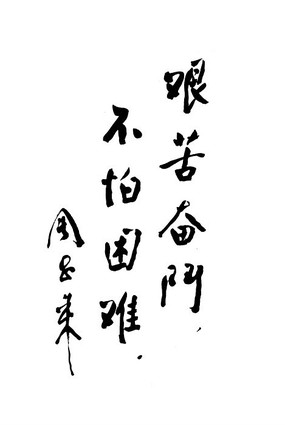 艰苦奋鬥、
不怕困难.
周恩来